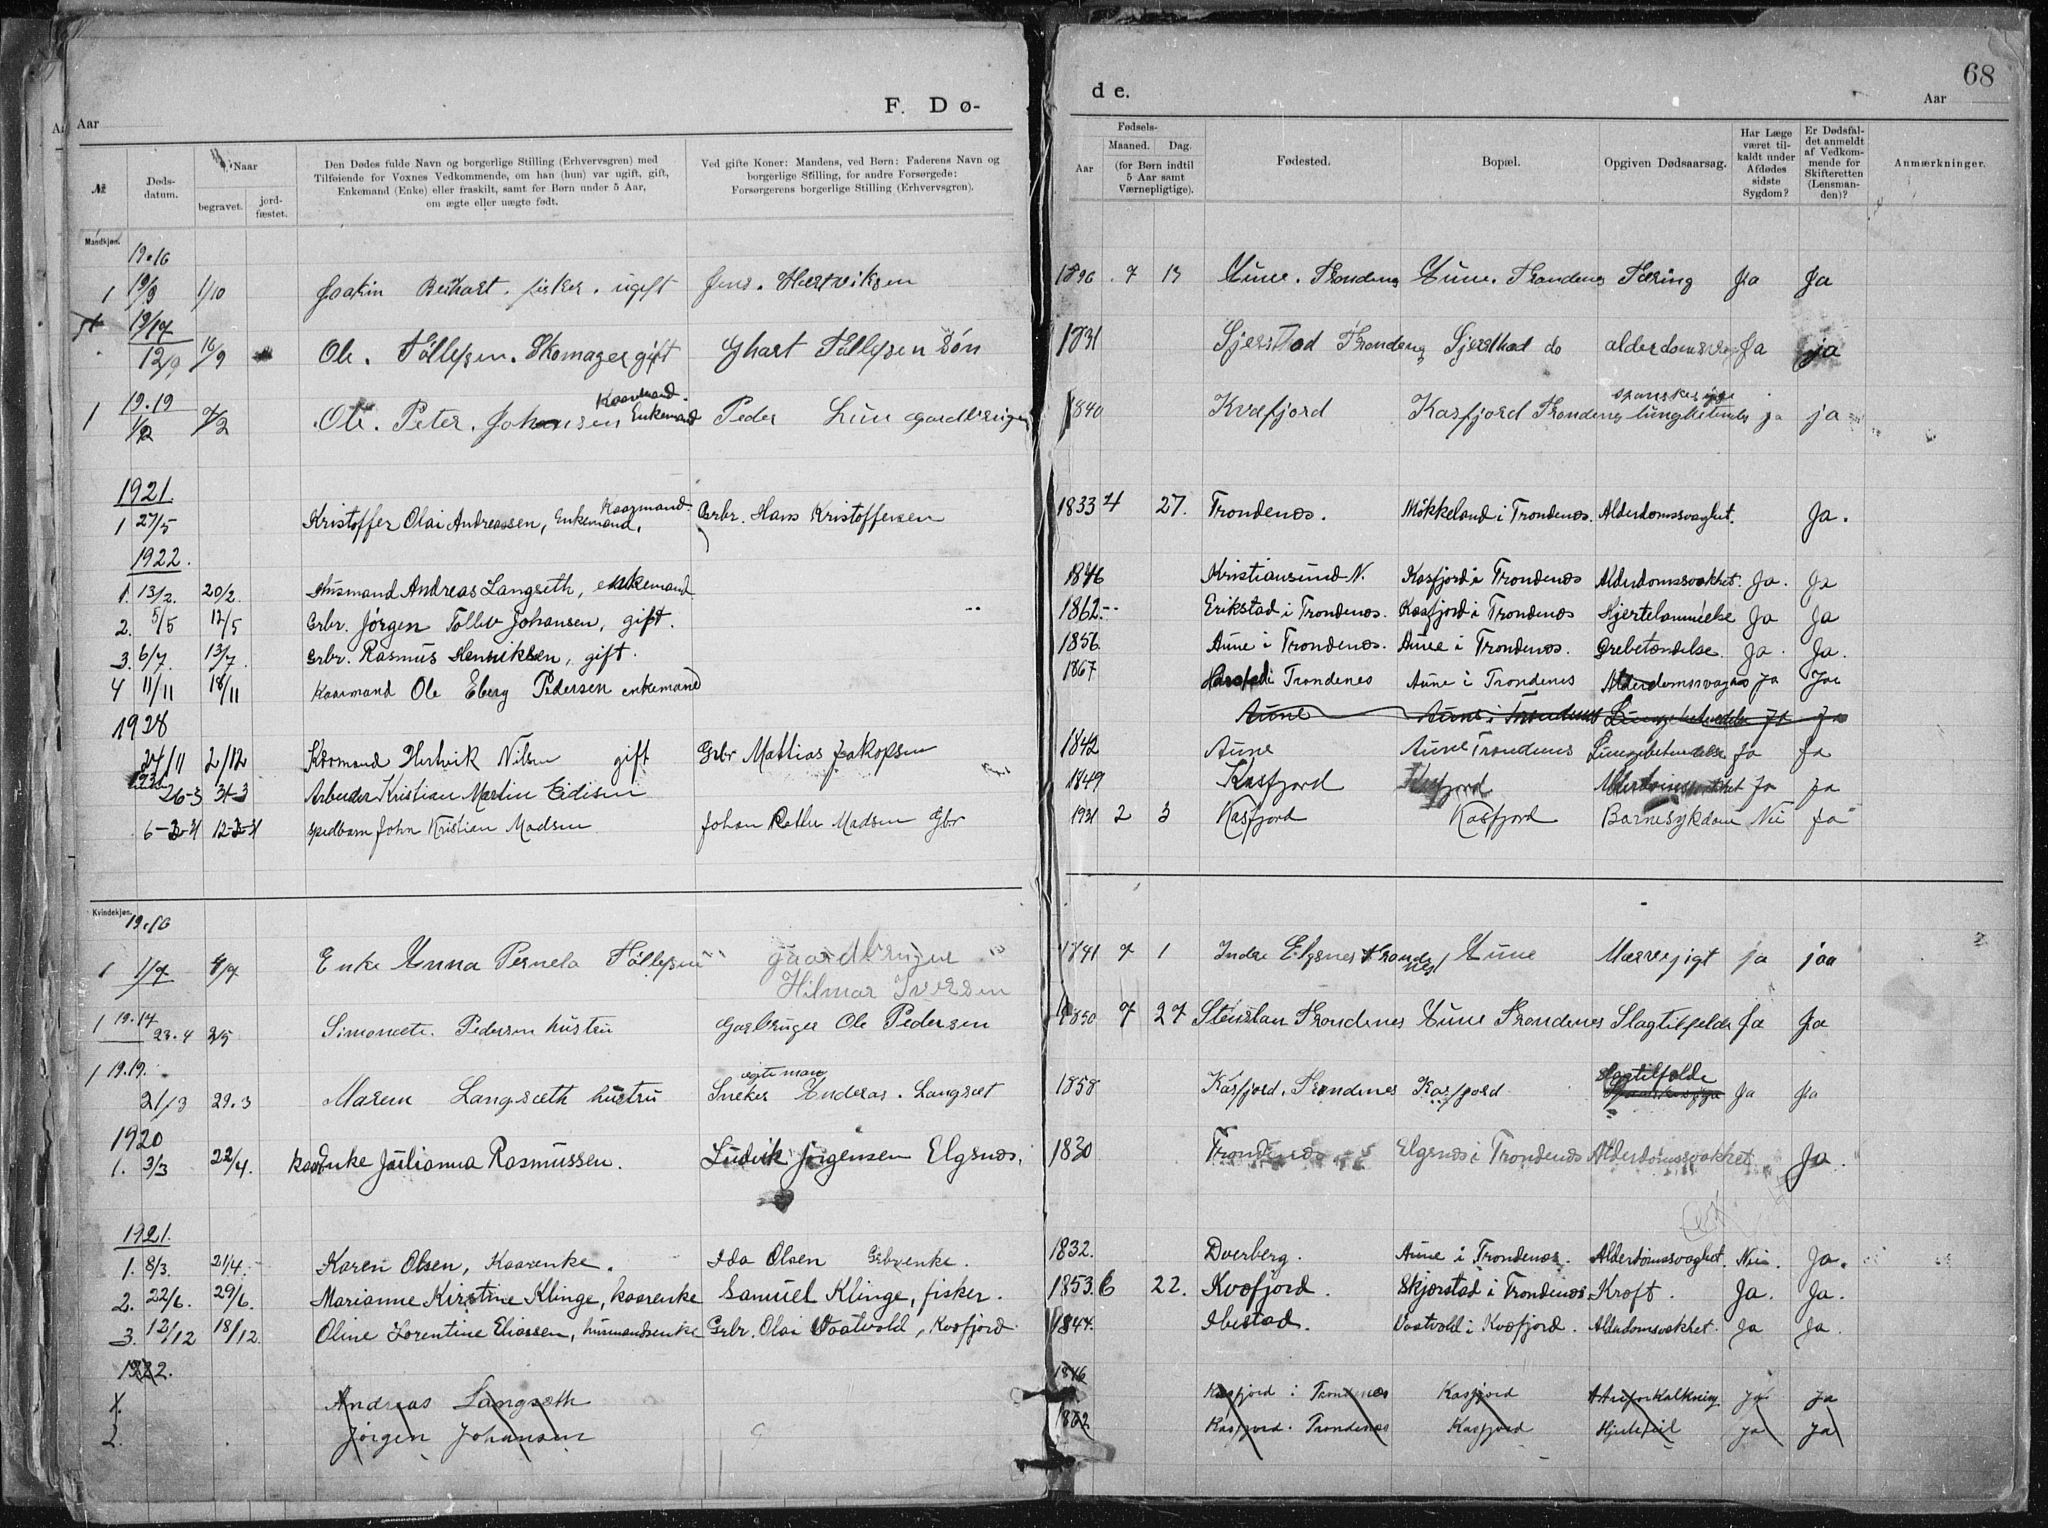 68
F. Dø-
de.
Aar
Aar
№
Døds-
datum.
Naar
begravet.
jord-
fæstet.
Den Dødes fulde Navn og borgerlige Stilling (Erhvervsgren) med
Tilføiende for Voxnes Vedkommende, om han (hun) var ugift, gift,
Enkemand (Enke) eller fraskilt, samt for Børn under 5 Aar,
om ægte eller uægte født.
Ved gifte Koner: Mandens, ved Børn: Faderens Navn og
borgerlige Stilling, for andre Forsørgede:
Forsørgerens borgerlige Stilling (Erhvervsgren).
Fødsels-
Aar
Maaned.
Dag.
(for Børn indtil
5 Aar samt
Værnepligtige).
Fødested.
Bopæl.
Opgiven Dødsaarsag.
Har Læge
været til-
kaldt under
Afdødes
sidste
Sygdom?
Er Dødsfal-
det anmeldt
af Vedkom-
mende for
Skifteretten
(Lensman-
den)?
Anmærkninger.
Mandkjøn.
19.16
1 19/9 1/10 Joakin fisker. ugift Jens. Hertviksen 1896 7 13 Aune. Trondenes Aune. Trondenes Tæring Ja Ja
19/17
12/9 16/9 Ole. Tøllefsen. Skomager gift Tøllefsen søn 1831 Trondenes do Ja ja
19.19 Kaarmand. spanskesyge
1 1/2 9/2 Ole. Peter. Johansen Enkemand Peder 1840 Kvæfjord Kasfjord Trondenes ja ja
1921. Kaarmand.
1 27/5 Kristoffer Olai Andreassen, Enkemand, Grbr. Hans Kristoffersen 1833 4 27. Trondenæs. Møkkeland i Trondenæs. Alderdomssvaghet. Ja.
1922.
1. 13/2. 20/2. Husmand Andreas Langseth, enkemand 1846 Kristiansund N. Kasfjord i Trondenæs Alderdomssvakhet. Ja. Ja
2. 5/5 12/5 Grbr. Jørgen Tollev Johansen, gift. 1862. Erikstad i Trondenæs. Kasfjord i Trondenæs Hjertelammelse Ja Ja
3. 6/7. 13/7. Grbr. Rasmus Henriksen, gift. 1856. Aune i Trondenæs. Aune i Trondenæs. Ørebetændelse. Ja. Ja.
4 11/11 18/11 Kaarmand Ole Eberg Pedersen enkemand 1867 Harstad i Trondenes Aune i Trondenes Ja Ja
1928 Aune Aune i Trondenes Lungebetændelse Ja Ja
24/11 2/12 Kårmand Hertvik Nilsen gift Grbr Mattias Jakopsen 1842 Aune Aune Trondenes Lungebetændelse Ja Ja
26-3 31-3 Arbeider Kristian Martin Eidisen 1849 Kasfjord Kasfjord Ja Ja
6-3-31 12-3-31 spedbarn John Kristian Madsen Johan Madsen Gbr 1931 2 3 Kasfjord Kasfjord Barnesykdom Nei Ja
Kvindekjøn.
19.16
1 1/7 9/7 Enke Anna Pernela Tøllefsen gaardbruger 1841 7 1 Indre Elgsnes Trondenes Aune ja jaa
Hilmar Iversen
19.17
1 23.4 2/5 Simonette. Pedersen hustru Ole Pedersen 1850 7 27 Trondenes Aune Trondenes Slagtilfelde Ja Ja
1 19.19. egte man Slagtilfælde
21/3 29.3 Maren Langsæth hustru Sneker Anderas. Langset 1858 Kasfjord. Trondenes Kasfjord Ja Ja
1920
1. 3/3 22/4. Kaar Enke Julianna Rasmussen. Ludvik Jørgensen Elgsnæs. 1830 Trondenæs Elgsnæs i Trondenæs Alderdomssvakhet Ja.
1921.
1. 8/3. 21/4. Karen Olsen, Kaarenke. Ida Olsen Grbrenke. 1832. Dverberg. Aune i Trondenæs. Alderdomssvaghet. Nei. Ja.
2. 22/6. 29/6. Marianne Kirstine Klinge, kaarenke Samuel Klinge, fisker. 1853. 6 22. Kvæfjord. Skjærstad i Trondenæs. Kræft. Ja. Ja.
3. 12/12 18/12. Oline Lorentine Eliassen, husmandsenke Grbr. Olai Voatvold, Kvæfjord. 1847. Ibestad. Voatvold i Kvæfjord. Alderdomsvakhet. Ja Ja.
1922. 1846
1. Andreas Langseth Kasfjord i Trondenæs Kasfjord Ja Ja
2. Jørgen Johansen 1862 Kasfjord. Trondenæs Kasfjord Hjertefeil Ja Ja